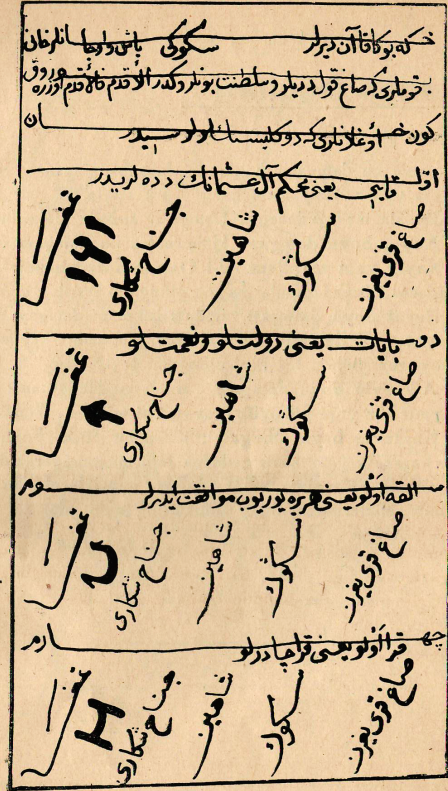 كه بوكا قاآن ديرلر سكوكى باش واوجا
قوملرى كه صاغ قول ديديلر وسلطنت بونلروكدر الاقدم فالاقدم اوزره
كون خان اوغلانلرى كه دوكليسنك اولوسيدر
اول قايى يعنى محكم آل عثمانك دده لريدر
صاغ قرى يغرن سكوك شاهين جناح شكارى
بايات يعنى دولتلو ونعمتلو
صاغ قرى يغرن سكوك شاهين جناح شكارى
القه اولو يعنى هر يره يوريوب موافقت ايدرلر
صاغ قرى يغرن سكوك شاهين جناح شكارى
قرا اولو يعنى قرا چادرلو
صاغ قرى يغرن سكوك شاهين جناح شكارى